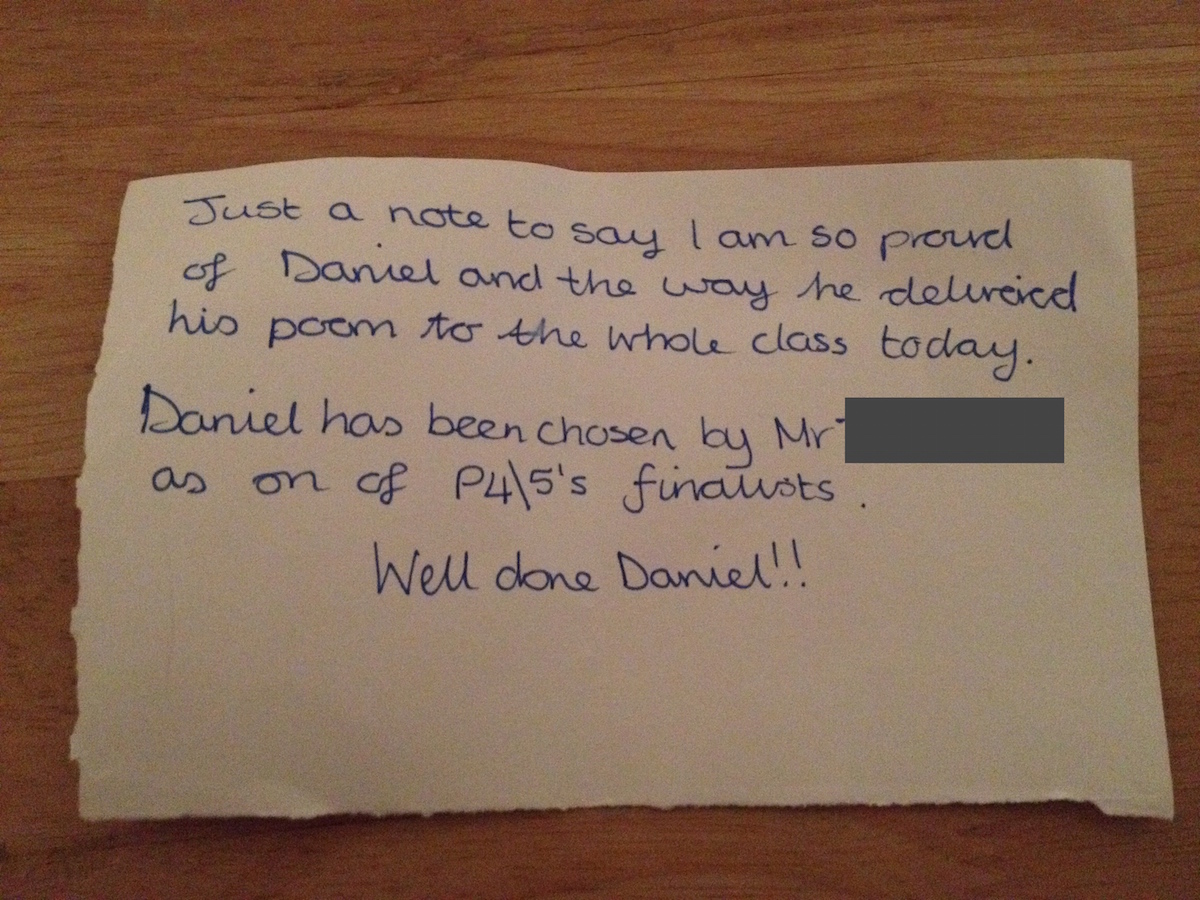 Just a note to say I am so proud
of Daniel and the way he delivered
his poem to the whole class today.
Daniel has been chosen by Mr
as on of P4\5's finalists.
Well done Daniel!!